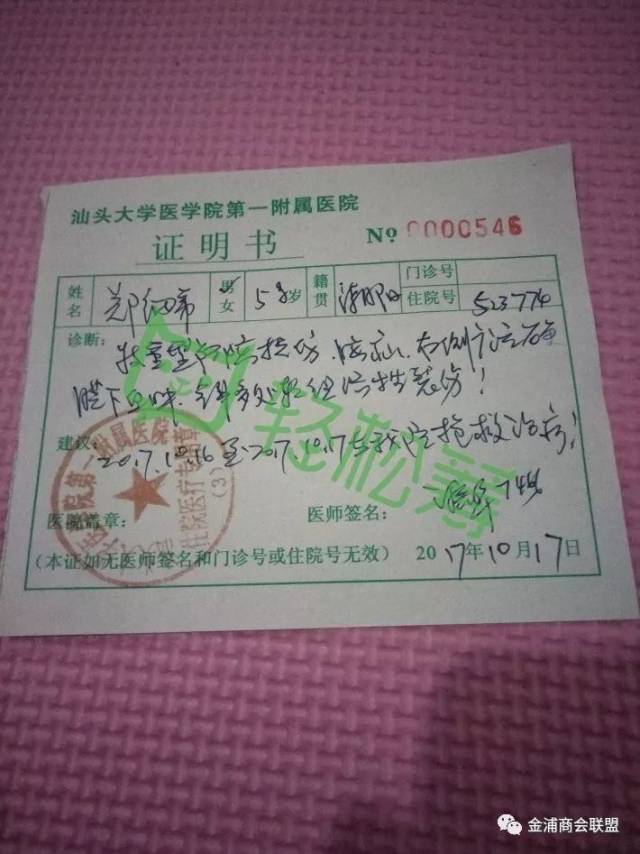 汕头大学医学院第一附属医院
证明书
No 0000546
姓名 郑 男 女 岁 籍贯 潮阳 门诊号
住院号 523774
诊断: 特重型颅脑损伤
膜下血肿 全身多处软组织挫裂伤!
建议: 2017.10.16至2017.10.17在我院抢救治疗!
医院盖章: 医师签名:
(本证如无医师签名和门诊号或住院号无效) 2017年10月17日
第一附属医院
住院医疗专用章
(3)
轻松筹
金浦商会联盟